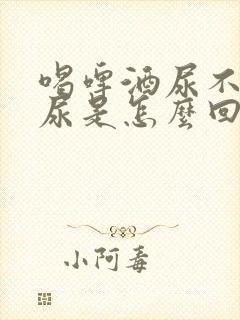 喝啤酒尿不
尿是怎麼回
小阿毒